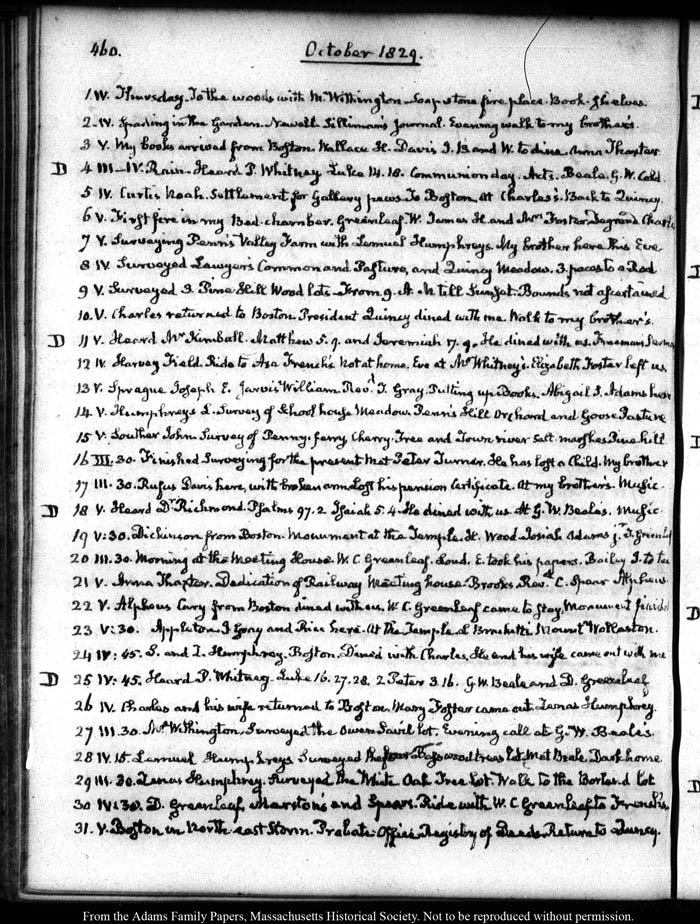 460. October 1829.
1. IV. Thursday. To the woods with Mr Withington. Soapstone fire place. Book. Shelves.
2. IV. Spading in the Garden. Newall Silliman's Journal. Evening walk to my brother's.
3 V. My books arrived from Boston. Wallace H. Davis I. B and W. to dine. Anna Thaxter
D 4 III-IV. Rain. Heard P. Whitney Luke 14. 18. Communion day. Acts. Beale. G. W. Cold
5 IV. Curtis Noah. Settlement for Gallery pews. To Boston. At Charles's. Back to Quincy.
6 V. First fire in my Bed-chamber. Greenleaf W. James H. and Mrs Foster. Charles
7 V. Surveying Penn's Valley Farm with Lemuel Humphreys. My brother here this Eve
8 IV. Surveyed Lawyer's Common and Pasture, and Quincy Meadow. 3. paces to a Rod
9 V. Surveyed 3. Pine Hill Wood lots. From 9. A. M till Sunset. Bounds not ascertained
10. V. Charles returned to Boston. President Quincy dined with me. Walk to my brother's.
D 11 V. Heard Mr Kimball. Matthew 5. 9. and Jeremiah 17. 9. He dined with us. Freeman
12 IV. Harvey Field. Ride to Asa French's. Not at home. Eve at Mr Whitney's. Elizabeth Foster left us.
13 V. Sprague Joseph E. Jarvis William. Revd. T. Gray. Putting up Books. Abigail S. Adams here
14. V. Humphreys L. Survey of School house Meadow Penn's Hill Orchard and Goose Pasture
15 V. Souther John. Survey of Penny-ferry, Cherry-Tree and Town river Salt-marshes Pine hill
16 III. 30. Finished Surveying for the present. Met Peter Turner. He has lost a Child. My brother
17 III. 30. Rufus Davis here, with broken arm. Lost his pension Certificate. At my brother's. Music.
D 18 V. Heard Dr Richmond. Psalms 97. 2 Isaiah 5. 4. He dined with us. At G. W. Beales. Music
19 V: 30. Dickinson from Boston. Monument at the Temple. H. Wood. Josiah Adams jr. T. Greenleaf
20 III. 30. Morning at the Meeting House. W. C. Greenleaf. Loud. E. took his papers. Bailey I. to tea
21 V. Anna Thaxter. Dedication of Railway Meeting house. Brooks. Revd. C. Spear Alpheus
22 V. Alpheus Cary from Boston dined with us. W. C. Greenleaf came to stay. Monument finished
23 V: 30. Appleton. J. Gray and Rice here. At the Temple. Mount Wollaston.
24 IV: 45. S. and L. Humphrey. Boston. Dined with Charles. He and his wife came out with me
D 25 IV: 45. Heard P. Whitney. Luke 16. 27. 28. 2 Peter 3. 16. G. W. Beale and D. Greenleaf
26 IV. Charles and his wife returned to Boston. Mary Foster came out. Lemas Humphrey.
27 III. 30. Mr Withington, Surveyed the Owen Savil lot. Evening call at G. W. Beale's
28 IV. 15. Lemuel Humphreys Surveyed the four Basswood trees lot. Met Beale. Dark home.
29 III. 30. Lemas Humphrey. Surveyed the White Oak Tree lot. Walk to the Borland lot
30 IV: 30. D. Greenleaf, Marstons and Spear. Ride with W. C Greenleaf to French's.
31. V. Boston in North-east Storm. Probate-Office. Registry of Deeds. Return to Quincy.
D
From the Adams Family Papers, Massachusetts Historical Society. Not to be reproduced without permission.